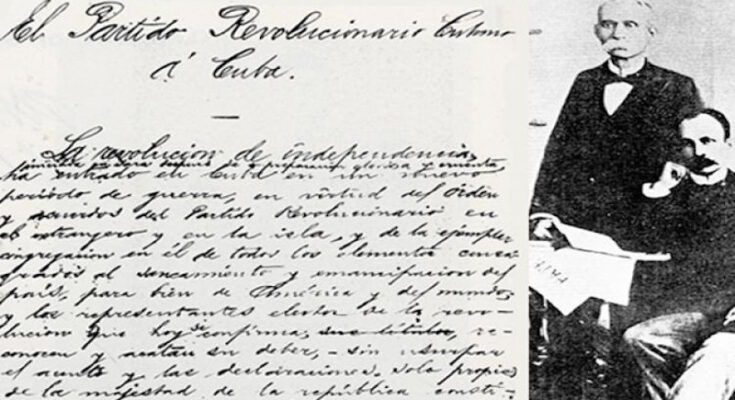 El Partido Revolucionario Cubano
á Cuba.
La revolucion de independencia,
iniciada en Yara despues de preparacion gloriosa y cruenta,
ha entrado en Cuba en un nuevo
periodo de guerra, en virtud del órden
y acuerdos del Partido Revolucionario en
el extranjero y en la isla, y de la ejemplar
congregacion en él de todos los elementos consa-
grados al saneamiento y emancipacion del
país, para bien de América y del mundo;
y los representantes electos de la revo-
lucion que hoy se confirma, re-
conocen y acatan su deber, - sin usurpar
el acento y las declaraciones solo propias
de la majestad de la república consti-